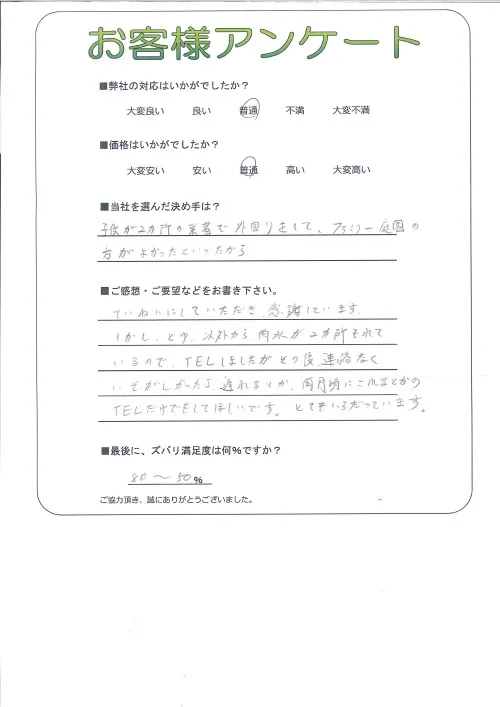 お客様アンケート
■弊社の対応はいかがでしたか？
大変良い 良い 普通 不満 大変不満
■価格はいかがでしたか？
大変安い 安い 普通 高い 大変高い
■当社を選んだ決め手は？
子供が2カ所の業者で外回りをして、ファミリー庭園の
方がよかったといったから
■ご感想・ご要望などをお書き下さい。
ていねいにしていただき、感謝しています。
しかし、とゆ、以外から雨水が2カ所もれて
いるので、TELしましたがその後、連絡なく
いそがしかったら、遅れるとか、何月頃にこれるとかの
TELだけでもしてほしいです。とてもいらだっています。
■最後に、ズバリ満足度は何％ですか？
80～50％
ご協力頂き、誠にありがとうございました。